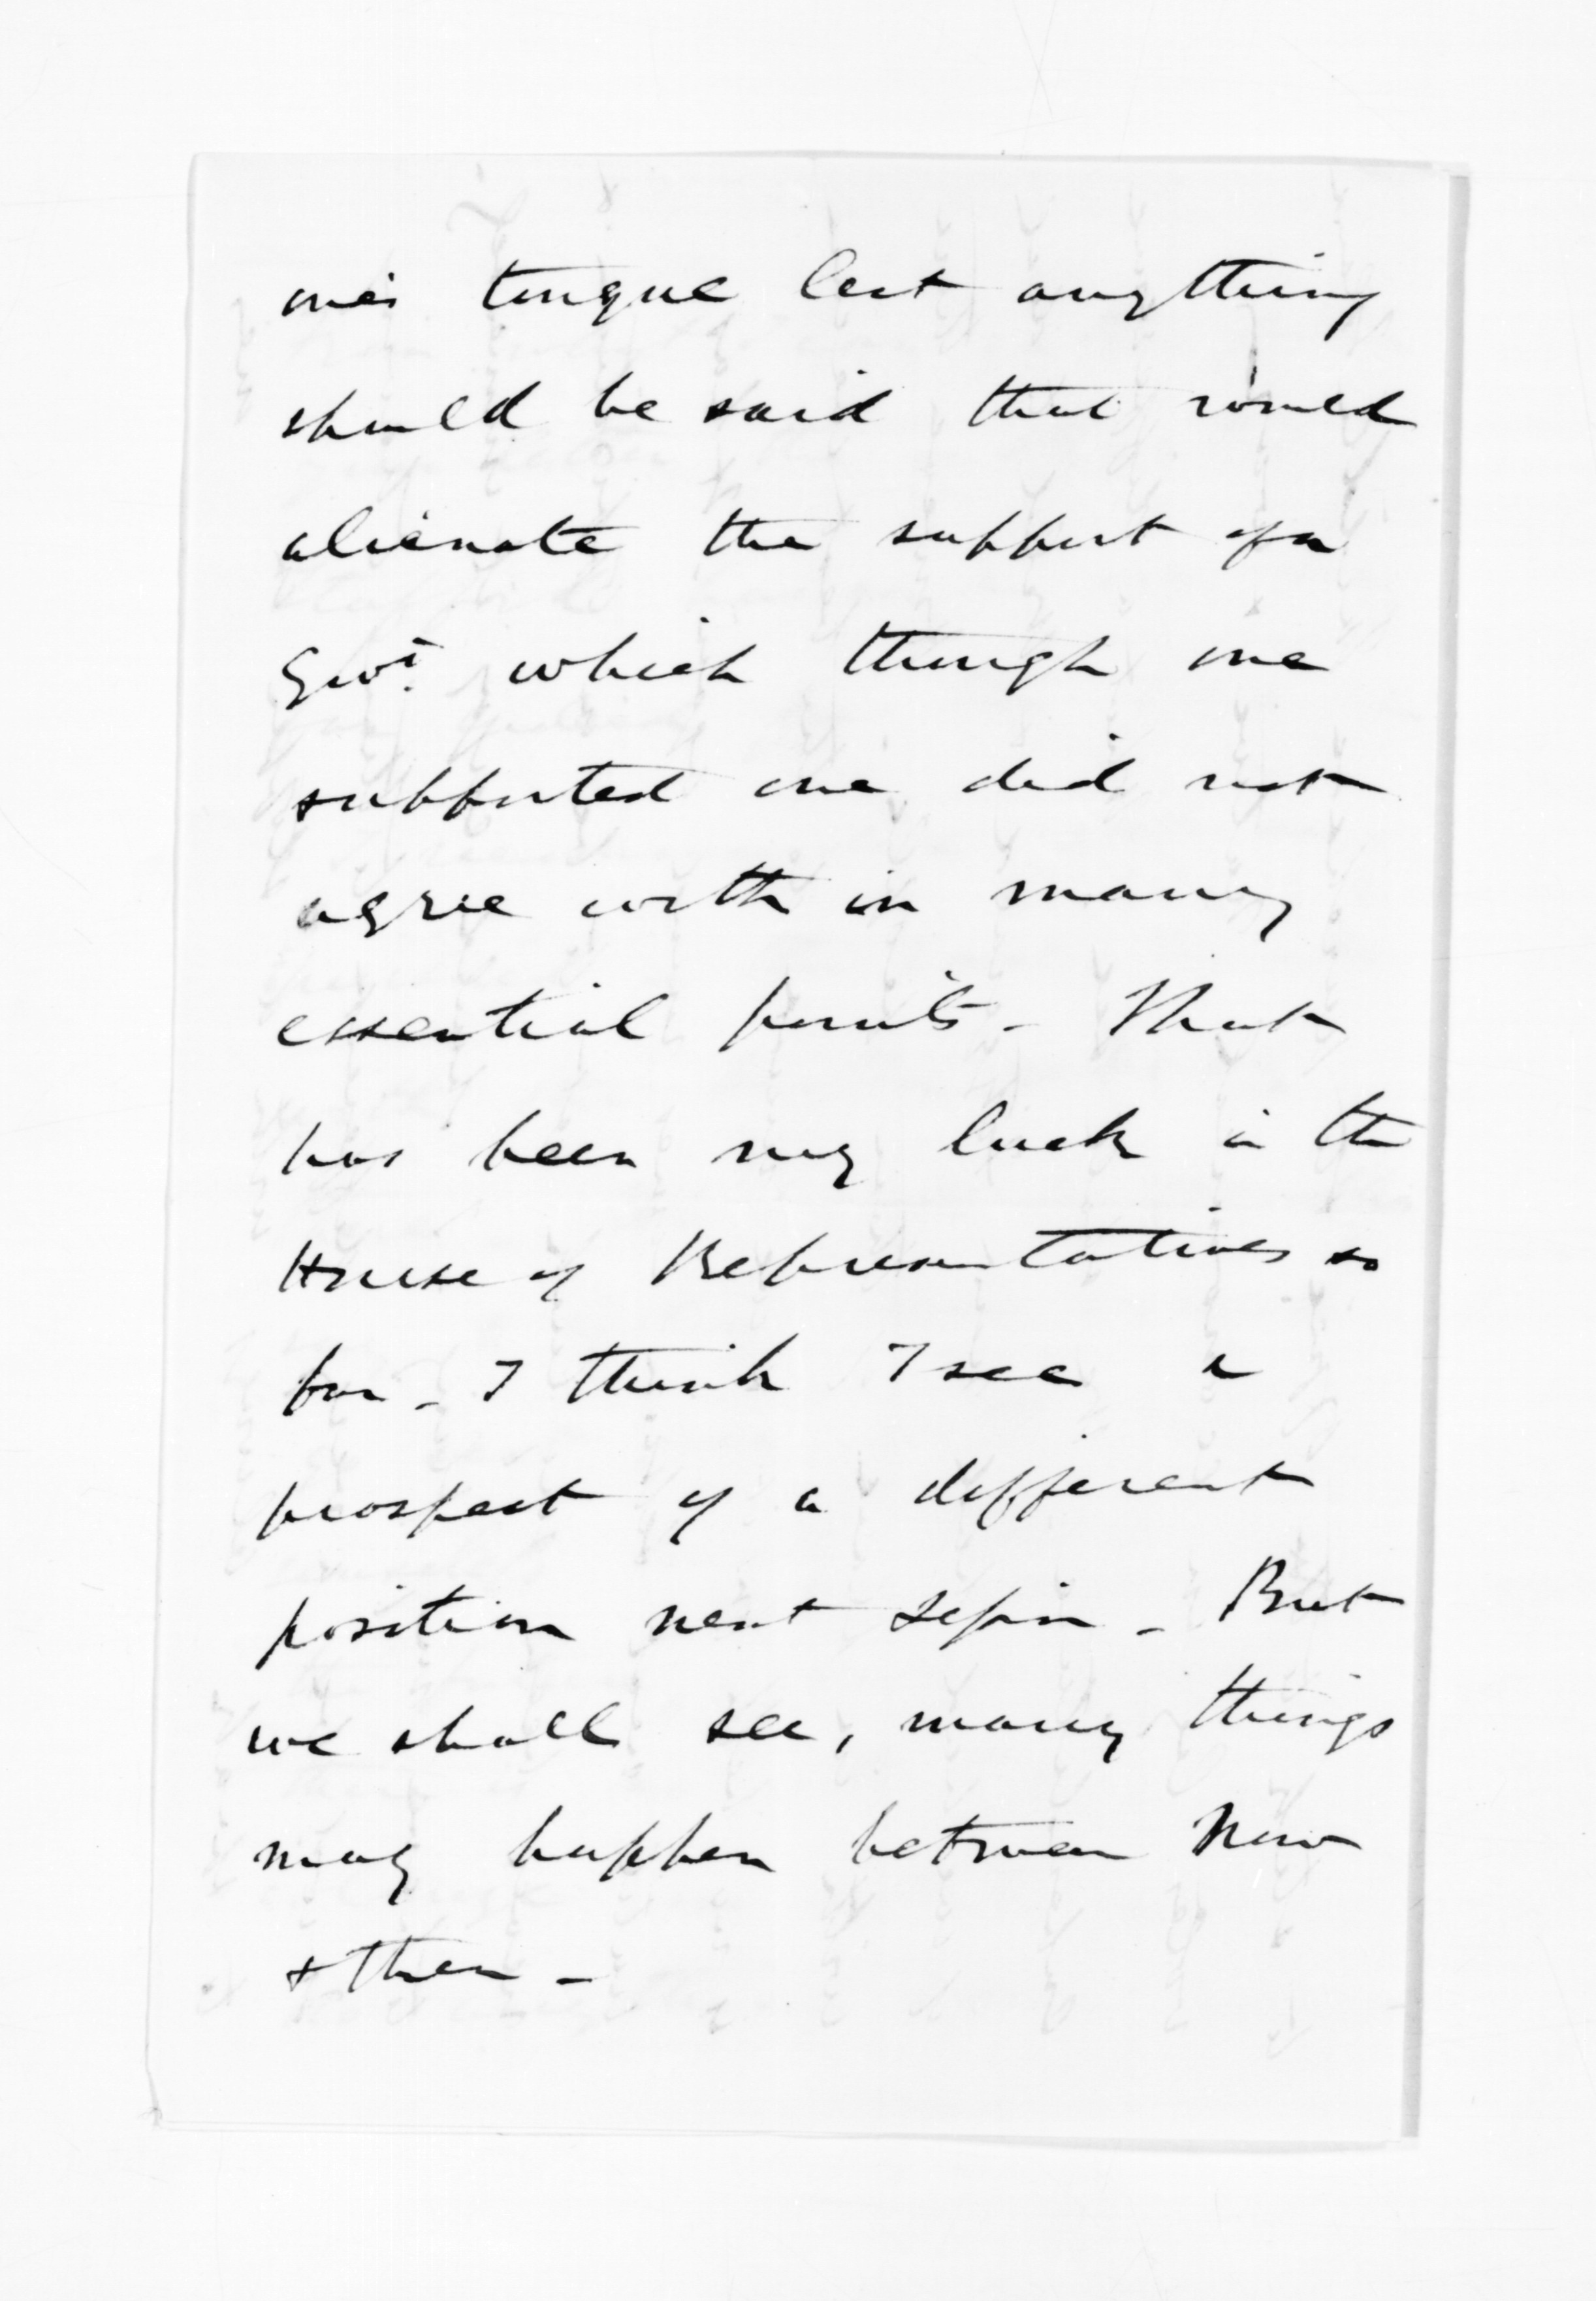 one's tongue lest anything
should be said that would
alienate the support of a
Govt. which though one
supported one did not
agree with in many
essential points - That
has been my luck in the
House of Representatives so
far - I think I see a
prospect of a different
position next Sessin - But
we shall see, many things
may happen between now
& then -